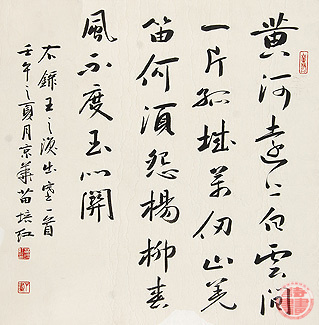 黄河遠上白雲間
一片孤城萬仞山羌
笛何須怨楊柳春
風不度玉門關
右錄王之渙出塞一首
壬午之夏月京華苗培红